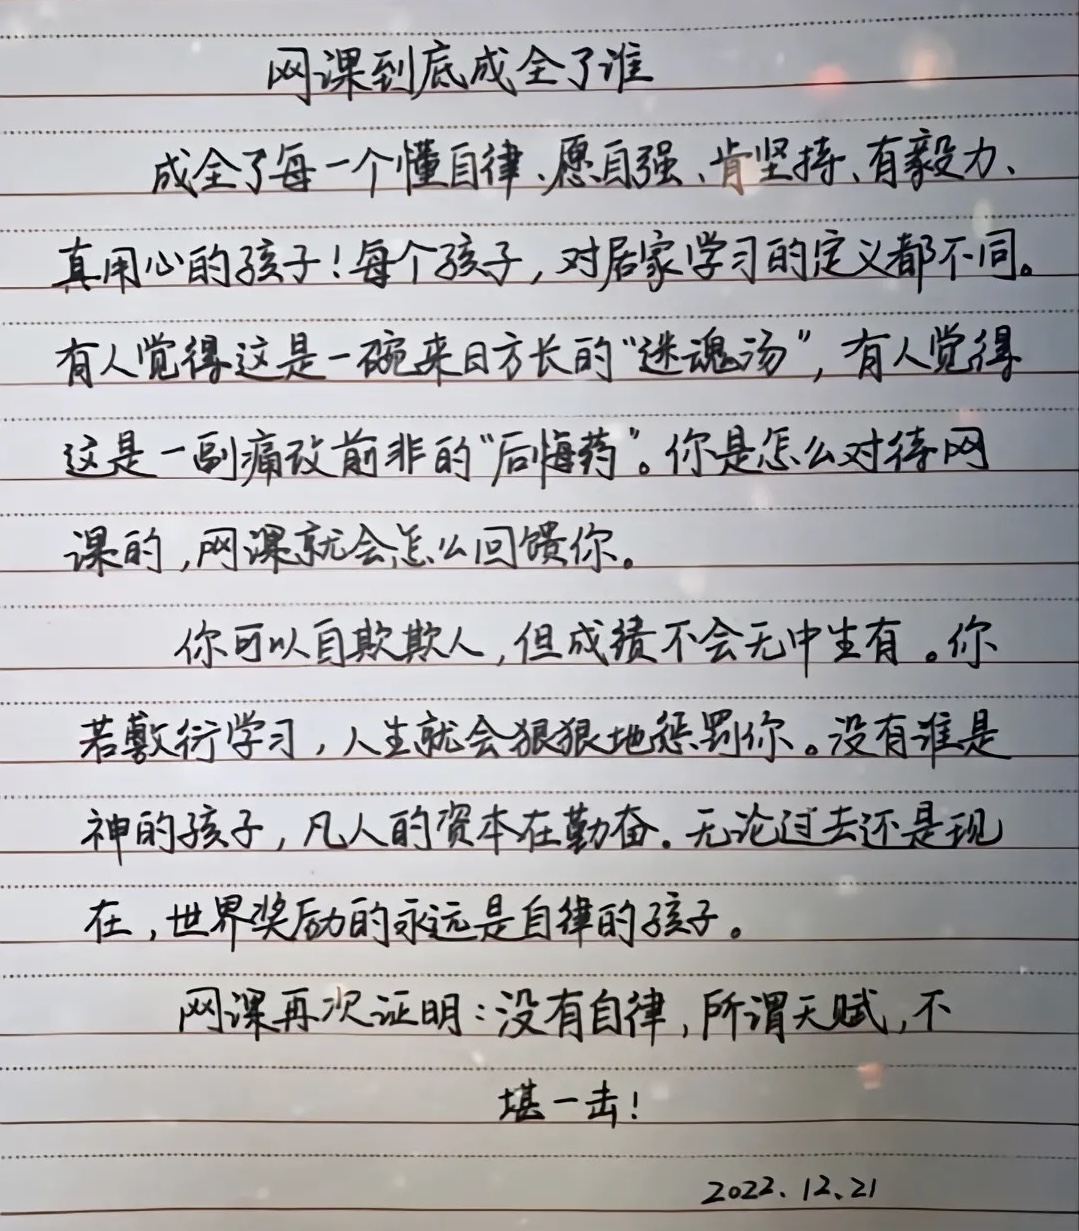 网课到底成全了谁
成全了每一个懂自律、愿自强、肯坚持、有毅力、
真用心的孩子！每个孩子，对居家学习的定义都不同。
有人觉得这是一碗来日方长的“迷魂汤”，有人觉得
这是一副痛改前非的“后悔药”。你是怎么对待网
课的，网课就会怎么回馈你。
你可以自欺欺人，但成绩不会无中生有。你
若敷衍学习，人生就会狠狠地惩罚你。没有谁是
神的孩子，凡人的资本在勤奋。无论过去还是现
在，世界奖励的永远是自律的孩子。
网课再次证明：没有自律，所谓天赋，不
堪一击！
2022.12.21